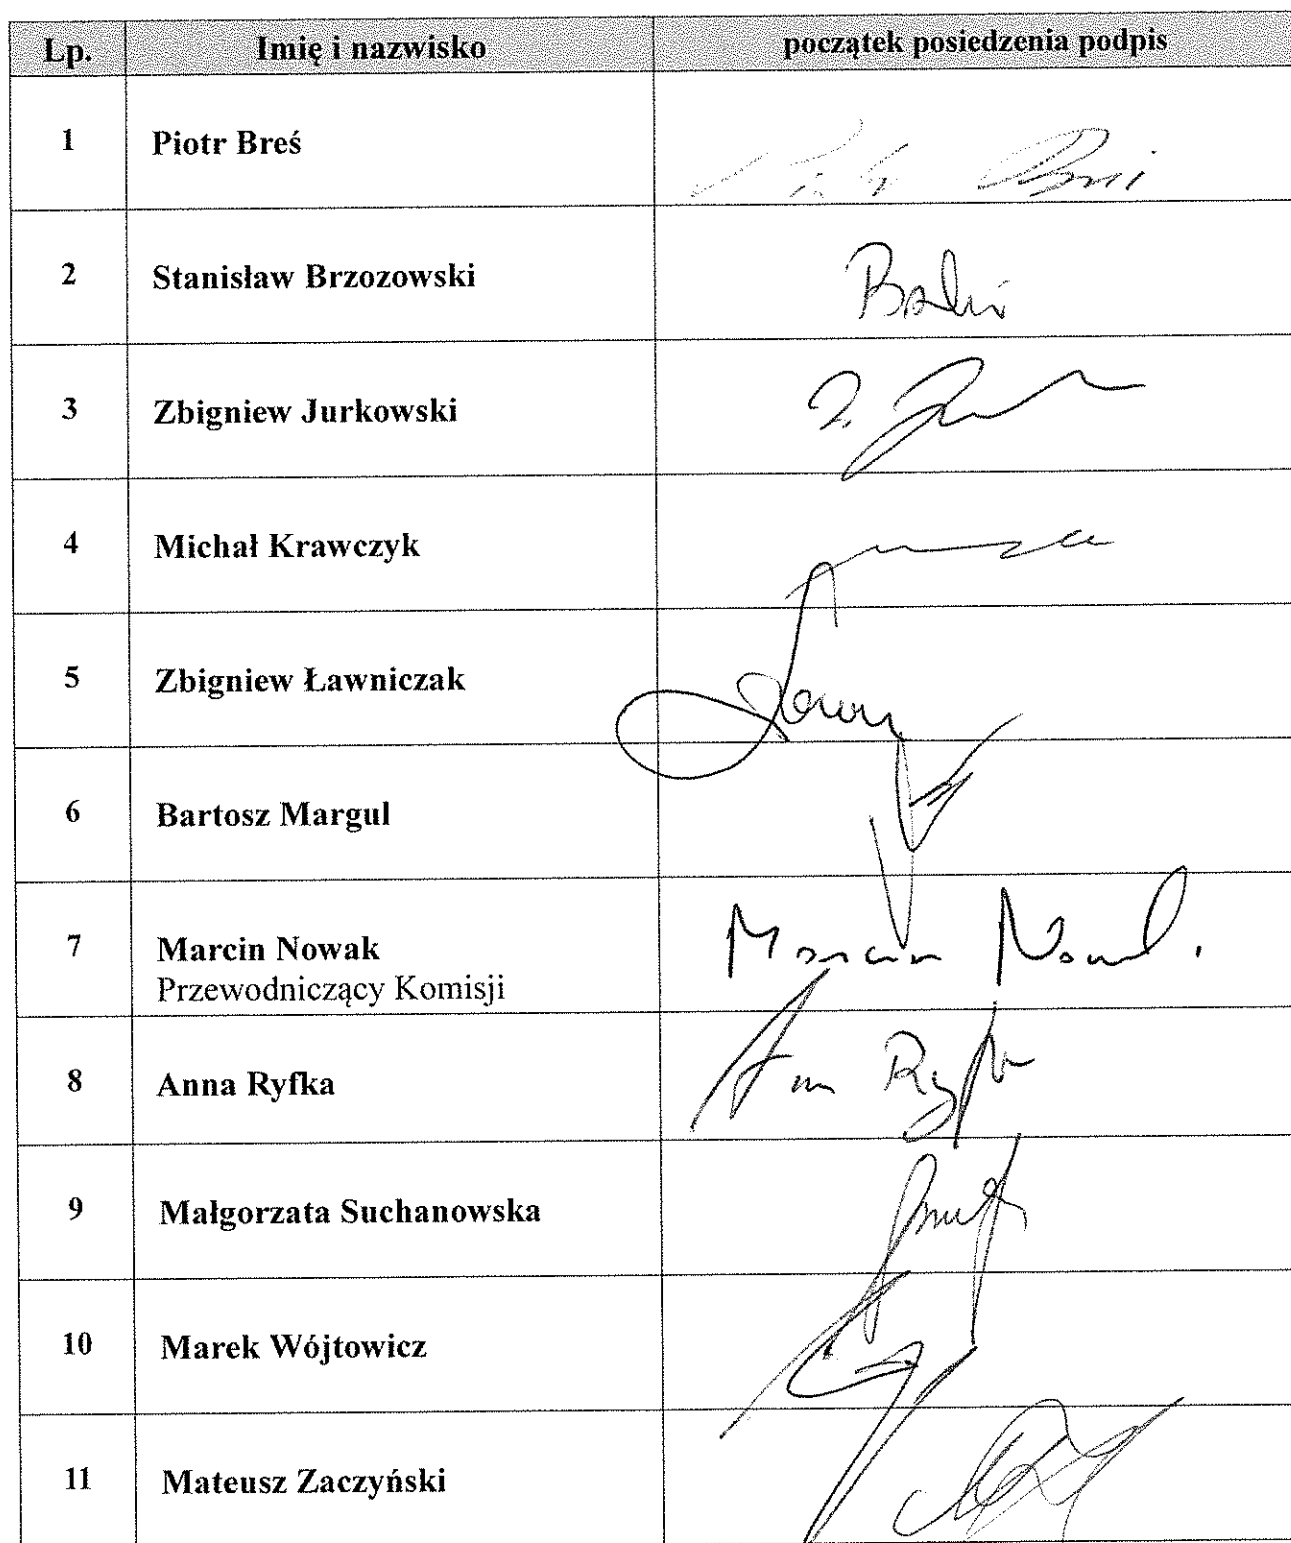 Lp. Imię i nazwisko początek posiedzenia podpis
1 Piotr Breś
2 Stanisław Brzozowski
3 Zbigniew Jurkowski
4 Michał Krawczyk
5 Zbigniew Ławniczak
6 Bartosz Margul
7 Marcin Nowak Marcin Nowak
Przewodniczący Komisji
8 Anna Ryfka
9 Małgorzata Suchanowska
10 Marek Wójtowicz
11 Mateusz Zaczyński